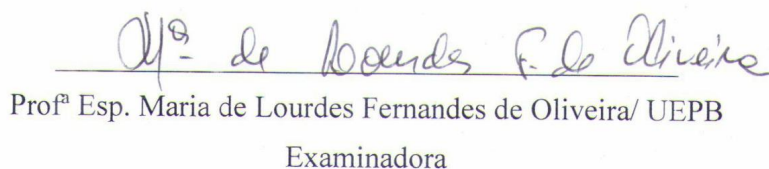 Mª de Lourdes F. de Oliveira
Profª Esp. Maria de Lourdes Fernandes de Oliveira/ UEPB
Examinadora